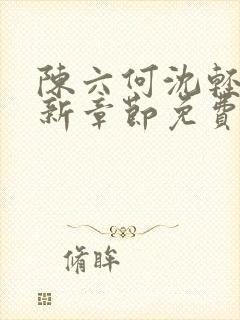 陳六何沈輕
新章節免費
脩眸